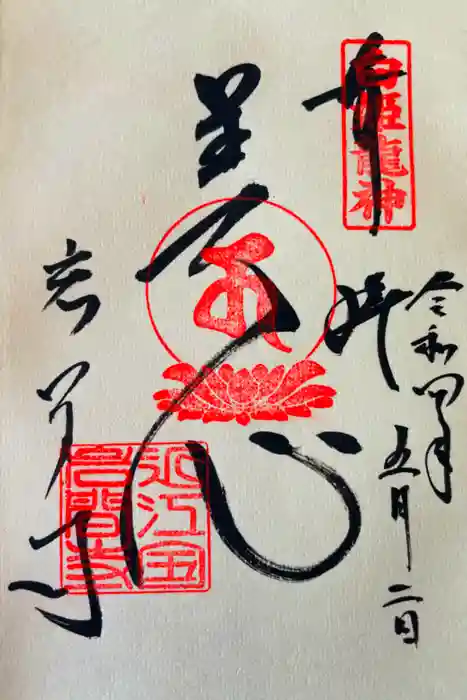 奉拝
白姫龍神
令和四年
五月二日
心
岩間寺
近江国
岩間寺